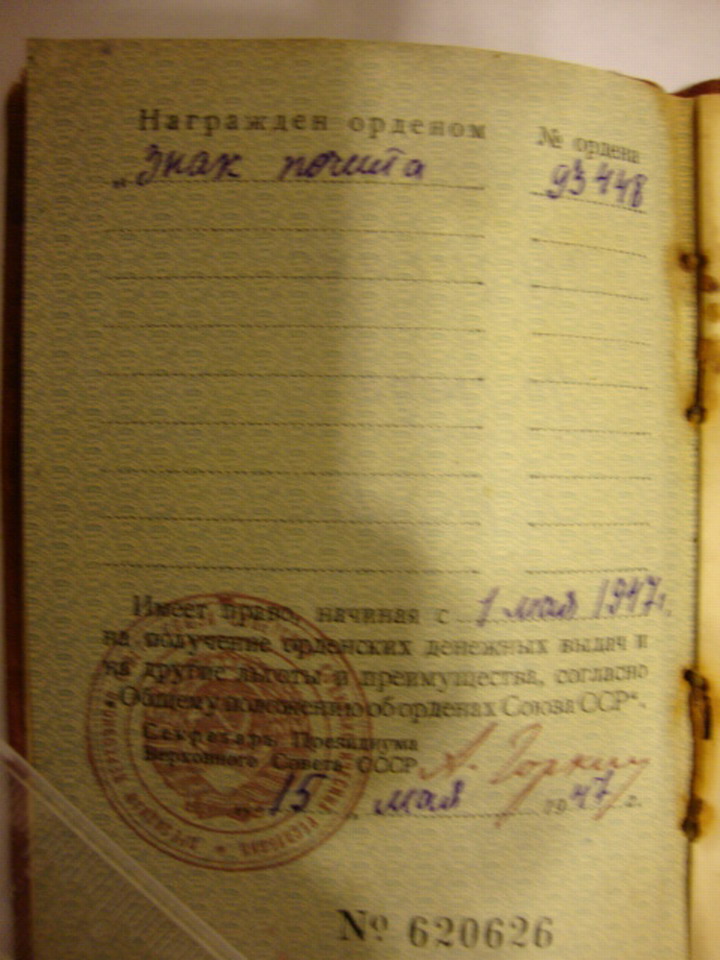 Награжден орденом № ордена
„Знак почета 93448
Имеет право, начиная с 1 мая 1947 г.
на получение орденских денежных выдач и
на другие льготы и преимущества, согласно
„Общему положению об орденах Союза ССР“.
Секретарь Президиума
Верховного Совета СССР А. Горкин
15 мая 1947 г.
№ 620626